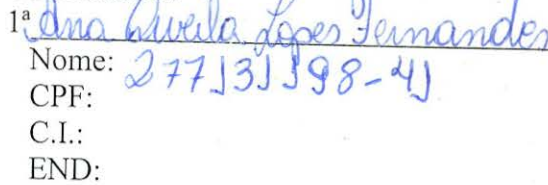 1ª Ana Lopes Fernandes
Nome: 277131398-41
CPF:
C.I.:
END: